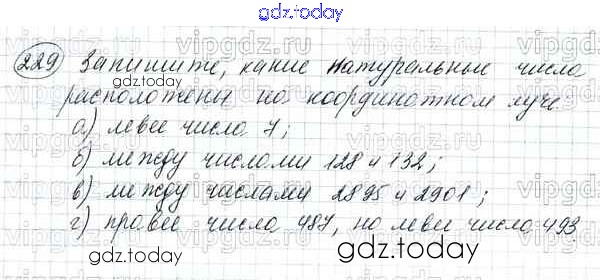 gdz.today
vipgdz.ru vipgdz.ru vipgdz.ru
229 Запишите, какие натуральные числа
gdz.today
расположены на координатном луче
а) левее числа 7;
vipgdz.ru vipgdz.ru vipgdz.ru
б) между числами 128 и 132;
в) между числами 2895 и 2901;
г) правее числа 487, но левее числа 493
gdz.today gdz.today